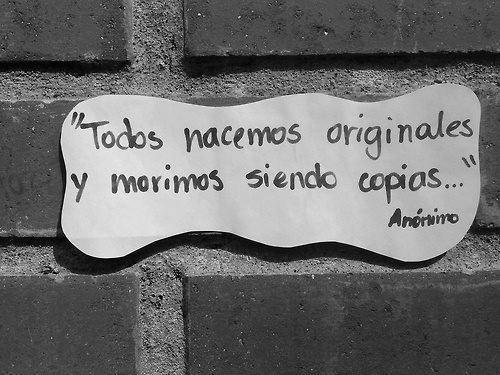 "Todos nacemos originales
y morimos siendo copias..."
Anónimo